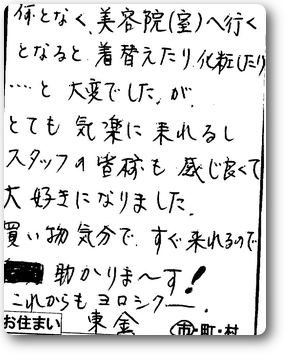 何となく、美容院(室)へ行く
となると、着替えたり、化粧したり
‥‥と 大変でした、が、
とても 気楽に 来れるし
スタッフの 皆様も 感じ良くて
大好きになりました。
買い物気分で、すぐ来れるので
助かりま〜す!
これからも ヨロシクー。
お住まい 東金 市・町・村